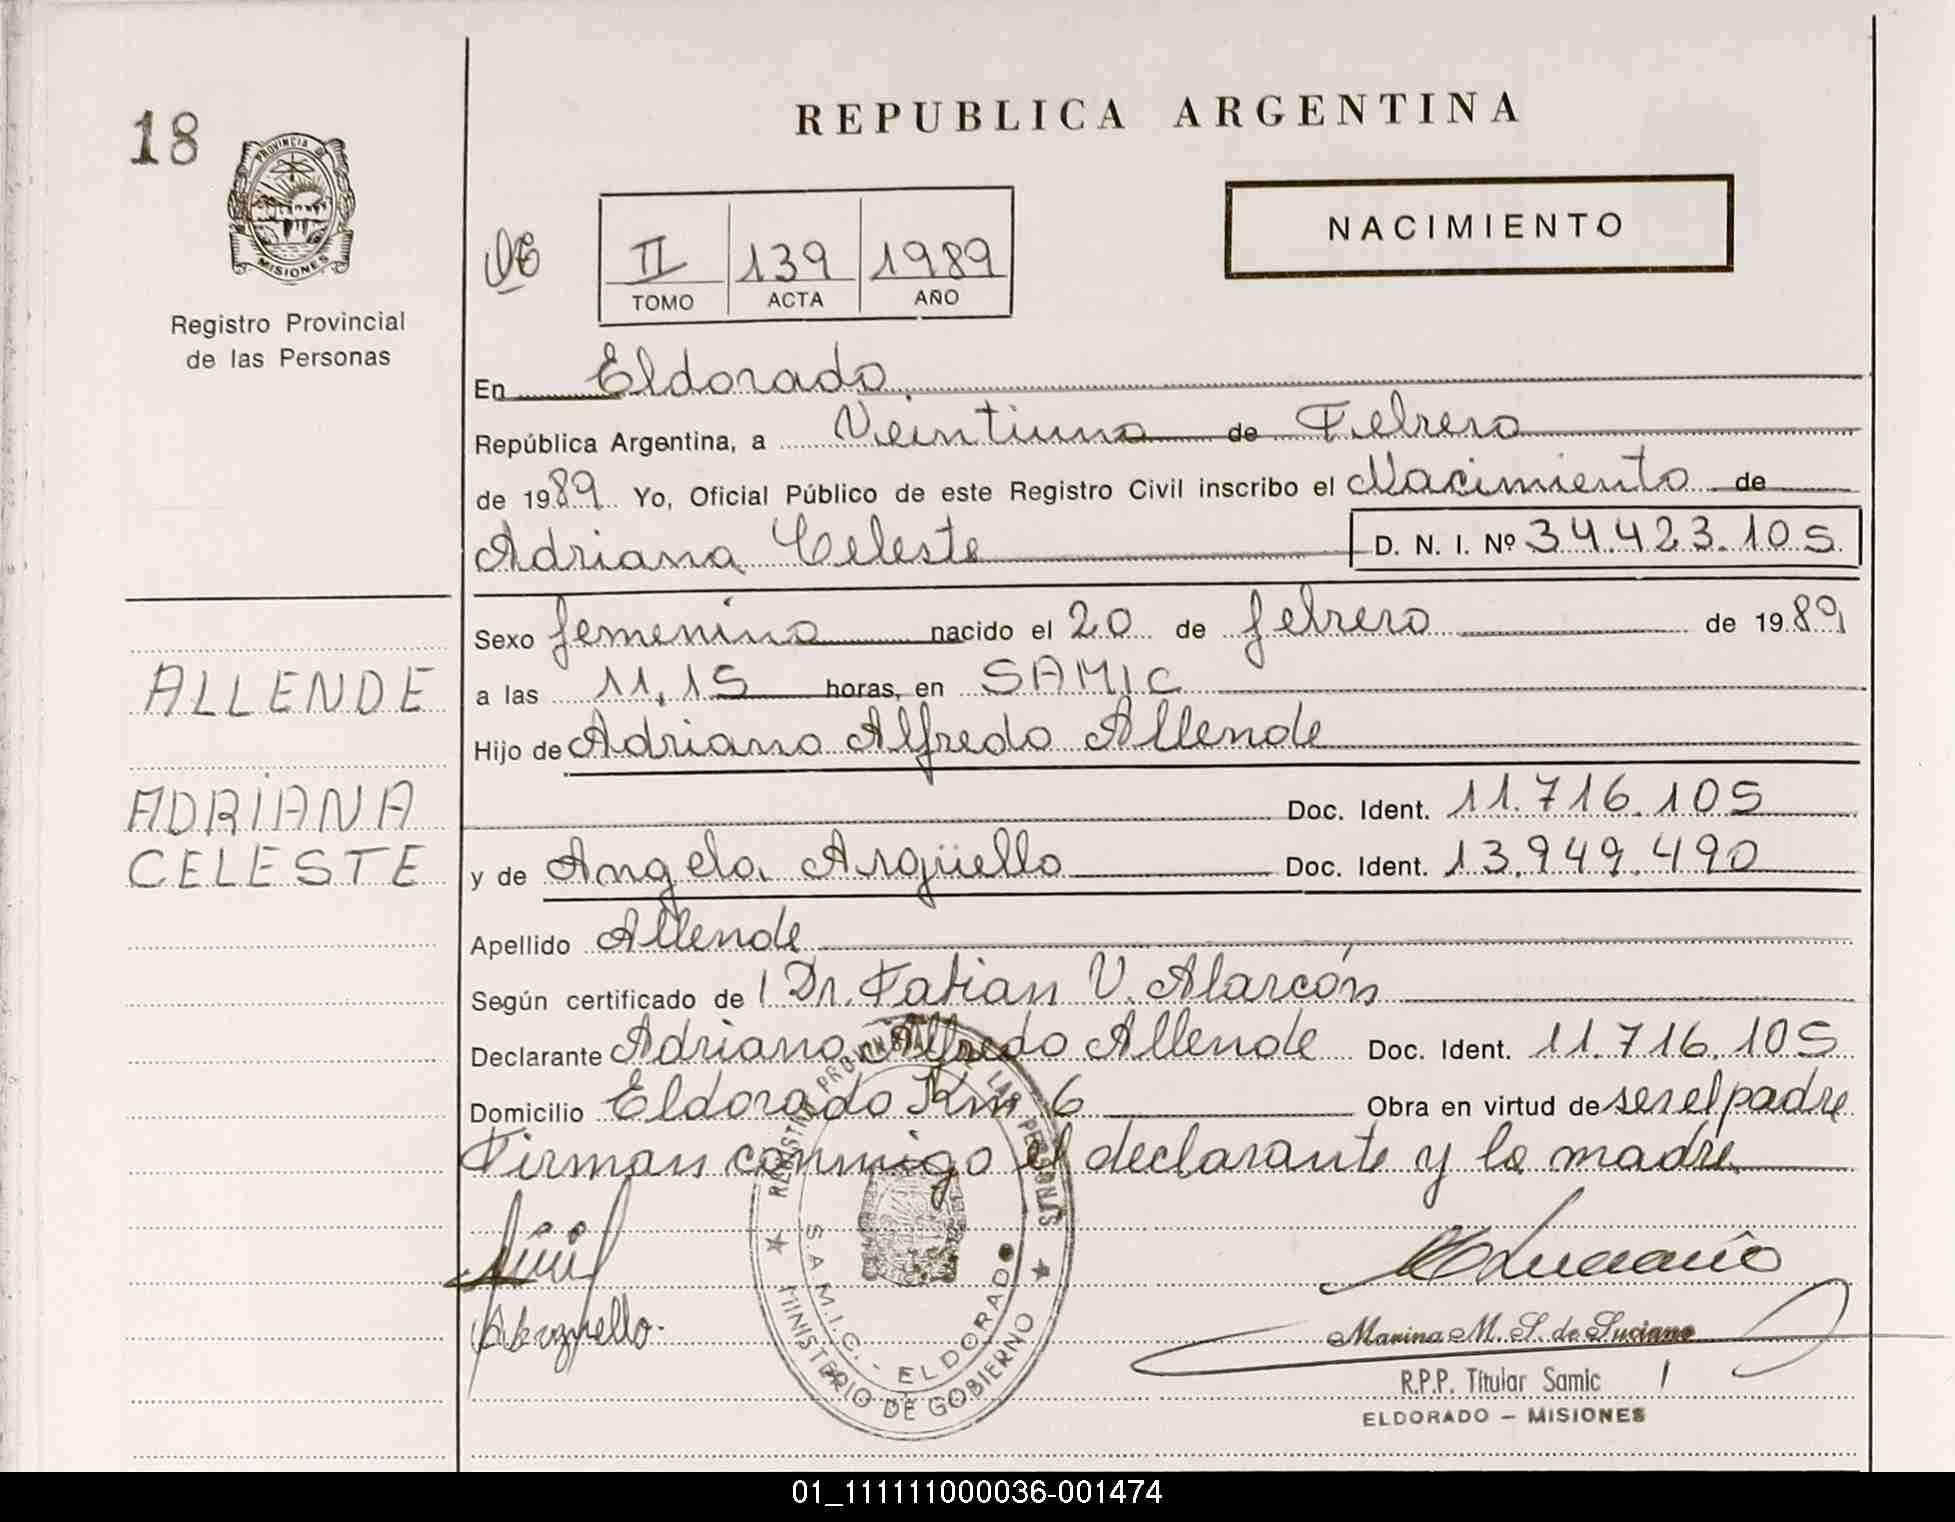 18
PROVINCIA DE
MISIONES
Registro Provincial
de las Personas
REPUBLICA ARGENTINA
NACIMIENTO
II 139 1989
TOMO ACTA AÑO
En Eldorado
República Argentina, a Veintiuno de Febrero
de 1989 Yo, Oficial Público de este Registro Civil inscribo el Nacimiento de
Adriana Celeste D. N. I. Nº 34.423.105
Sexo femenino nacido el 20 de febrero de 1989
ALLENDE
a las 11,15 horas, en SAMIC
Hijo de Adriano Alfredo Allende
ADRIANA
CELESTE
Doc. Ident. 11.716.105
y de Angela Argüello Doc. Ident. 13.949.490
Apellido Allende
Según certificado de Dr. Fabian V. Alarcón
Declarante Adriano Alfredo Allende Doc. Ident. 11.716.105
Domicilio Eldorado Km 6 Obra en virtud de ser el padre
Firman conmigo el declarante y la madre
REGISTRO PROVINCIAL DE LAS PERSONAS
S.A.M.I.C. - ELDORADO
MINISTERIO DE GOBIERNO
Marina M. S. de Luciano
R.P.P. Titular Samic
ELDORADO - MISIONES
01_111111000036-001474